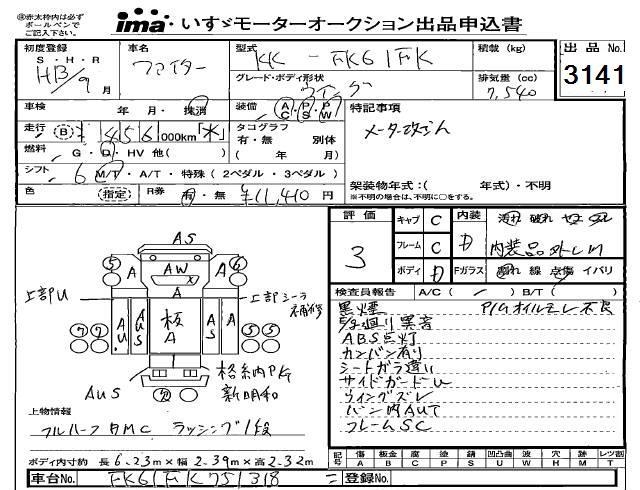 ※赤太枠内は必ず
ボールペンで
ご記入下さい。
ima いすゞモーターオークション出品申込書
初度登録
S・H・R
HB/9月
車名
ファイター
型式
KK-FK61FK
積載 (kg)
グレード・ボディ形状
ウイング
排気量 (cc)
7,540
出品No.
3141
車検 年・月・抹消
装備 A/C P/S P/W
特記事項
メーター改ざん
走行 (B) 1456 000km「水」
タコグラフ
有・無 別体
( 年 月)
燃料 G・D・HV 他( )
シフト 6 MT・A/T・特殊 (2ペダル・3ペダル)
架装物年式:( 年式)・不明
※不明の場合は、不明に○をする。
色 (指定) R券 有・無 ¥11,410円
評価
3
キャブ C
フレーム C
ボディ D
内装 D
汚れ 破れ
内装品外レ
Fガラス 線 点傷 イバリ
検査員報告 A/C( ) B/T( )
黒煙
P/Gオイルモレ不良
異音
ABS点灯
カンバン有り
シートガラ違い
サイドガードU
ウイングズレ
バン内AUT
フレームSC
AS
5 A AW A 6
A
上部U
上部シーラ
補修
7 7 AU AUS 板A AS A 5 5
AUS
格納PG
新明和
上物情報
フルハーフ BMC ラッシング1段
ボディ内寸約 長6.23m×幅2.39m×高2.32m
記号 傷 板金 腐 塗 錆 凹凸曲 波 穴 時 レツ割
A B C P S U W H M T
車台No. FK61FK751318 = 登録No.